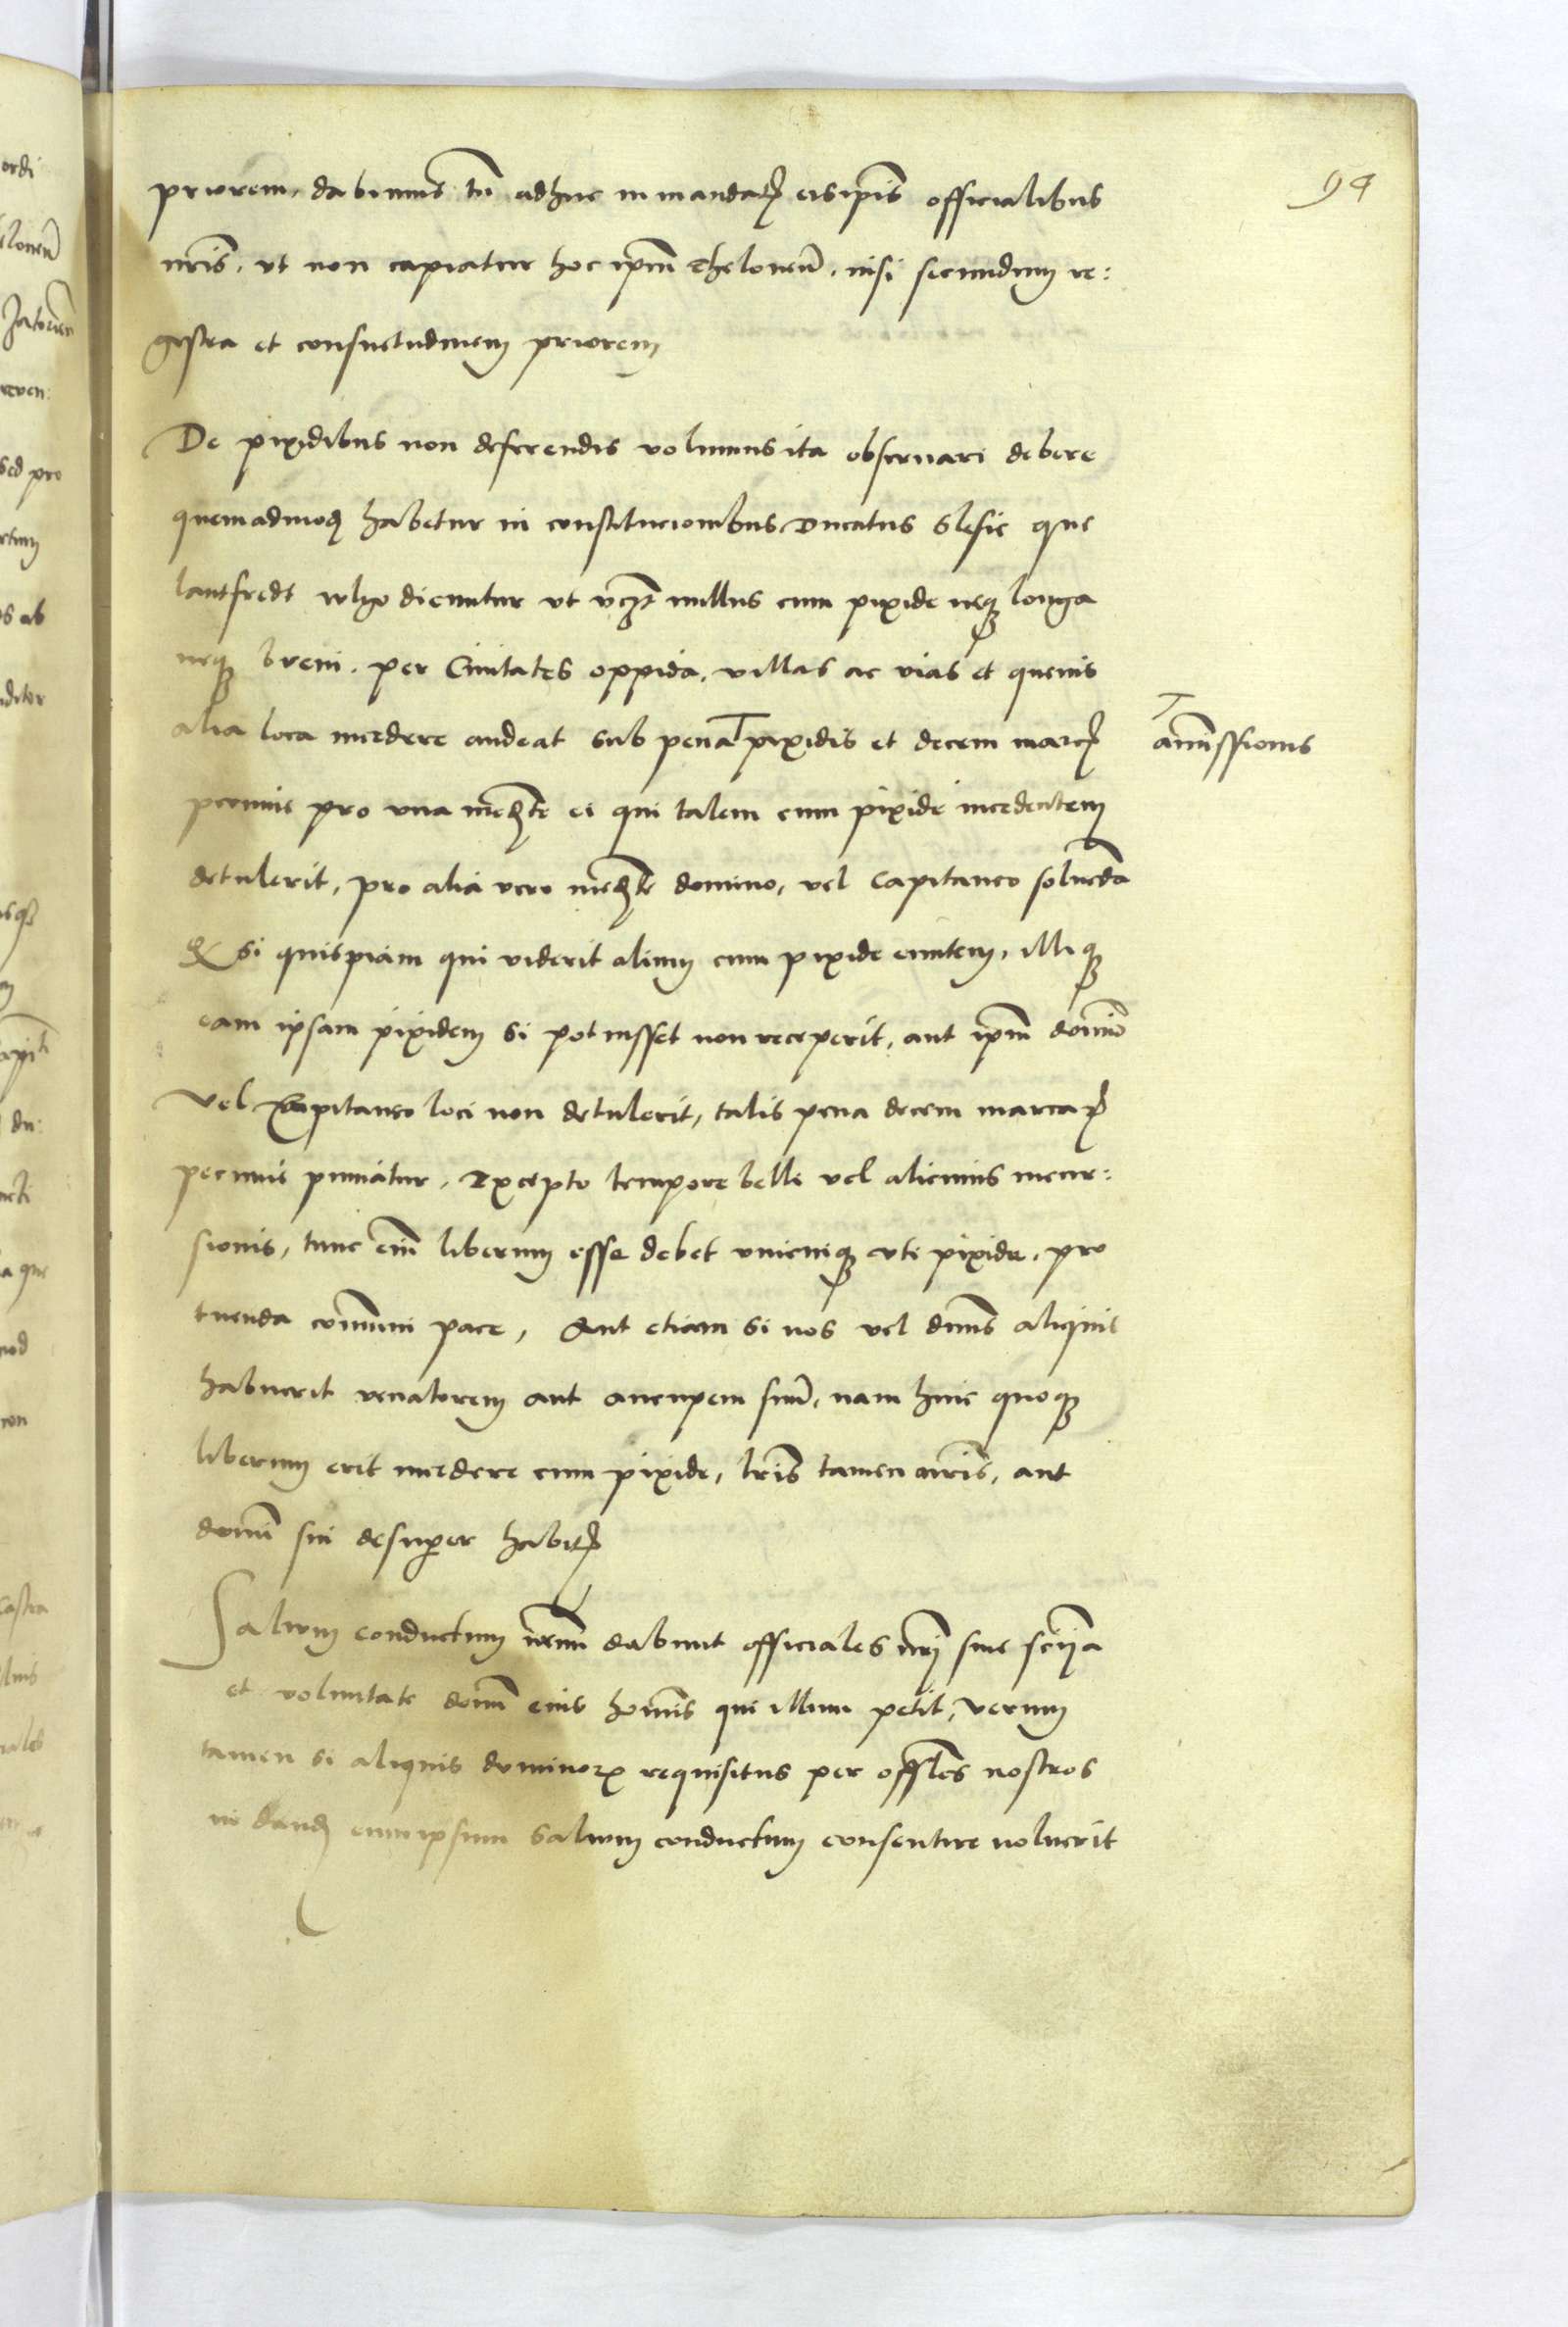 94
priorem, dabimus tn̄ adhuc in mandatꝭ eisip̄is officialibus
nr̄is, vt non capiatur hoc ip̄m theloneū, nisi secundum re:
gestra et consuetudinem priorem
De pixidibus non deferendis volumus ita obseruari debere
quemadmoꝫ habetur in constitucionibus Ducatus Slesie que
lantfredt wlgo dicuntur vt vcꝫt nullus cum pixide neqꝫ longa
neqꝫ breui, per Ciuitates oppida, villas ac vias et queuis
alia loca incedere audeat sub pena ⊤ pixidis et decem marcꝭ
⊤ amissionis
pecunie pro vna med̄te ei qui talem cum pixide incedentem
detulerit, pro alia vero med̄te domino, vel Capitaneo soluēda
Et si quispiam qui viderit alium cum pixide euntem, illi qꝫ
eam ipsam pixidem si potuisset non receperit, aut ip̄m domīo
vel Capitaneo loci non detulerit, talis pena decem marcaꝝ
pecunie puniatur, Excepto tempore belli vel alicuius incur:
sionis, tunc em̄ liberum esse debet vnicuiqꝫ vti pixide, pro
tuenda com̄uni pace, Aut etiam si nos vel dn̄us aliquis
habuerit venatorem aut aucupem suū, nam huic quoqꝫ
liberum erit incedere cum pixide, lr̄is tamen nr̄is, aut
domī sui desuper habitꝭ
Saluum conductum nr̄um dabunt officiales nr̄i sine sciī̄a
et voluntate domī eius homīs qui illum petit, verum
tamen si aliquis dominoꝝ requisitus per offles nostros
in danꝺ eumipsum saluum conductum consentire noluerit